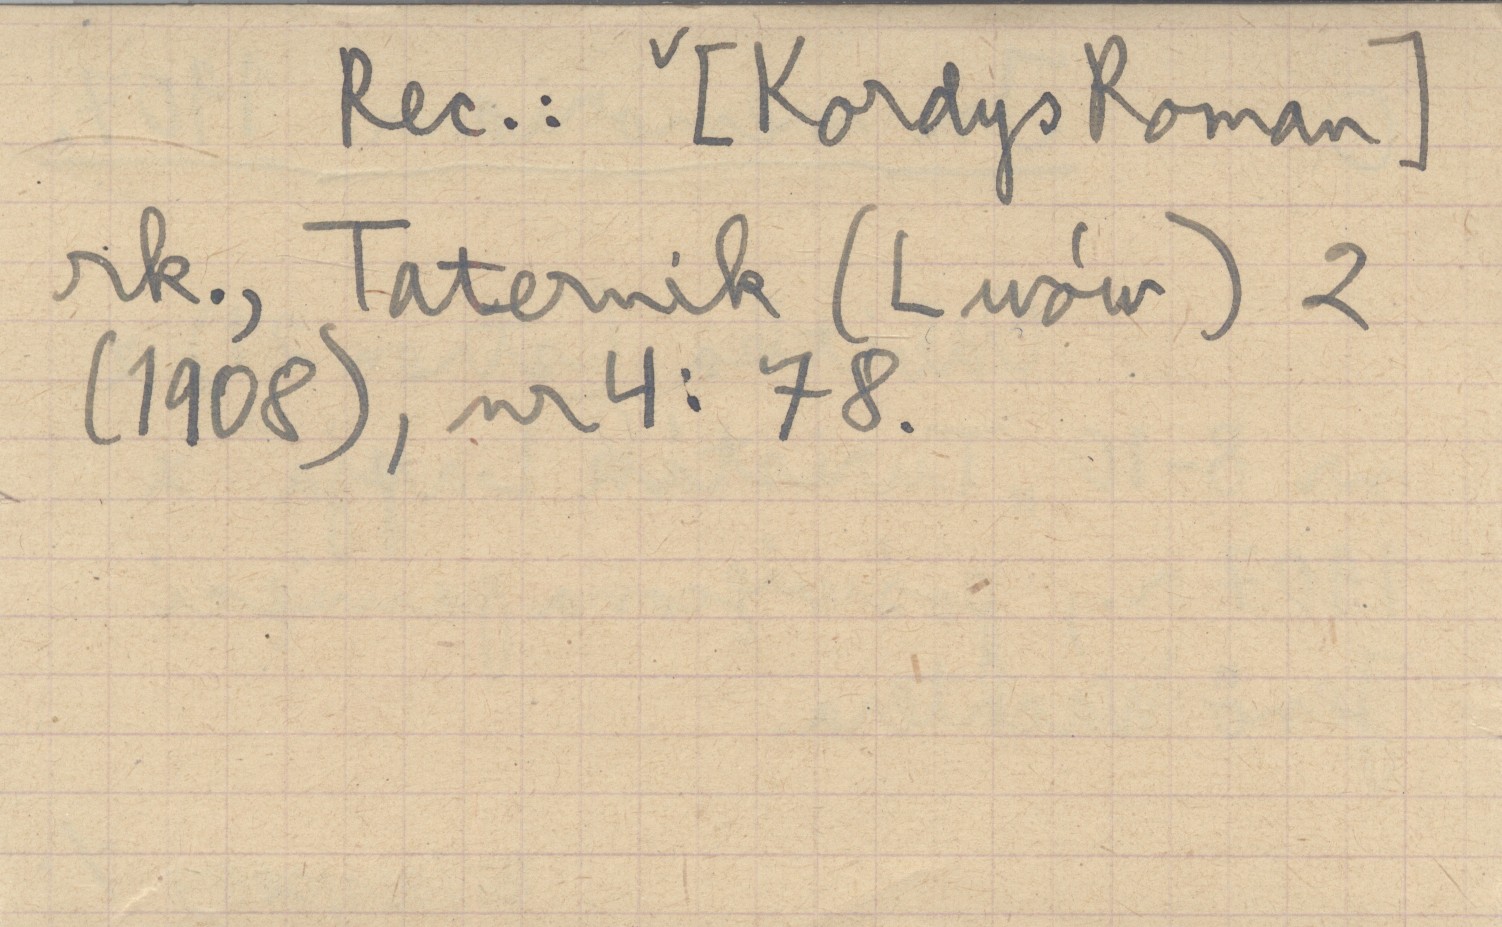 Rec.: ✓[Kordys Roman]
rk., Taternik (Lwów) 2
(1908), nr 4: 78.